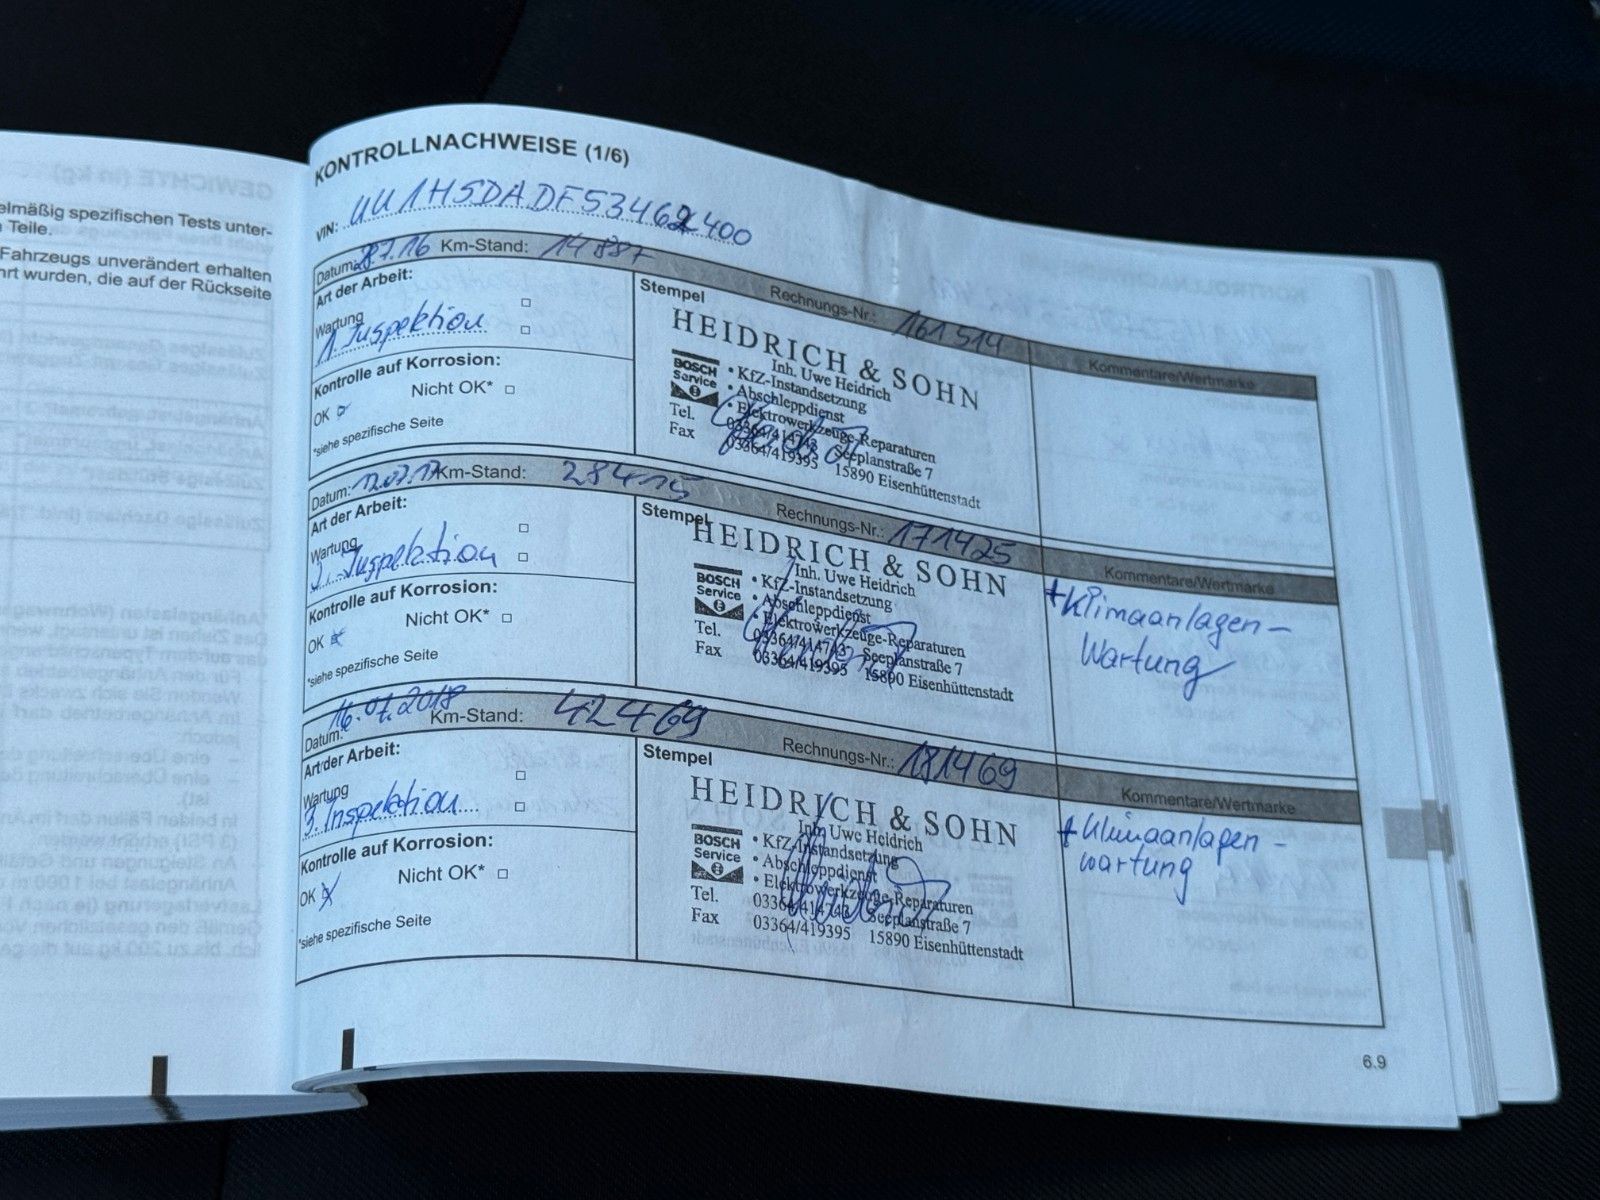 elmäßig spezifischen Tests unter-
Teile.
Fahrzeugs unverändert erhalten
hrt wurden, die auf der Rückseite
KONTROLLNACHWEISE (1/6)
VIN: UU1HSDADF53462400
Datum: 28.7.16 Km-Stand: 14887
Rechnungs-Nr.: 161514
Kommentare/Wertmarke
Art der Arbeit:
Wartung
1. Inspektion
Kontrolle auf Korrosion:
OK Nicht OK*
*siehe spezifische Seite
Stempel
HEIDRICH & SOHN
Inh. Uwe Heidrich
BOSCH Service
• KfZ-Instandsetzung
• Abschleppdienst
• Elektrowerkzeuge-Reparaturen
Tel. 03364/414743 Seeplanstraße 7
Fax 03364/419395 15890 Eisenhüttenstadt
Datum: 12.07.17 Km-Stand: 28415
Rechnungs-Nr.: 171425
Kommentare/Wertmarke
Art der Arbeit:
Wartung
2. Inspektion
Kontrolle auf Korrosion:
OK Nicht OK*
*siehe spezifische Seite
Stempel
HEIDRICH & SOHN
Inh. Uwe Heidrich
BOSCH Service
• KfZ-Instandsetzung
• Abschleppdienst
• Elektrowerkzeuge-Reparaturen
Tel. 03364/414743 Seeplanstraße 7
Fax 03364/419395 15890 Eisenhüttenstadt
+ Klimaanlagen-
Wartung
Datum: 16.07.2018 Km-Stand: 42469
Rechnungs-Nr.: 181469
Kommentare/Wertmarke
Art der Arbeit:
Wartung
3. Inspektion
Kontrolle auf Korrosion:
OK Nicht OK*
*siehe spezifische Seite
Stempel
HEIDRICH & SOHN
Inh. Uwe Heidrich
BOSCH Service
• KfZ-Instandsetzung
• Abschleppdienst
• Elektrowerkzeuge-Reparaturen
Tel. 03364/414743 Seeplanstraße 7
Fax 03364/419395 15890 Eisenhüttenstadt
+ Klimaanlagen-
wartung
6.9